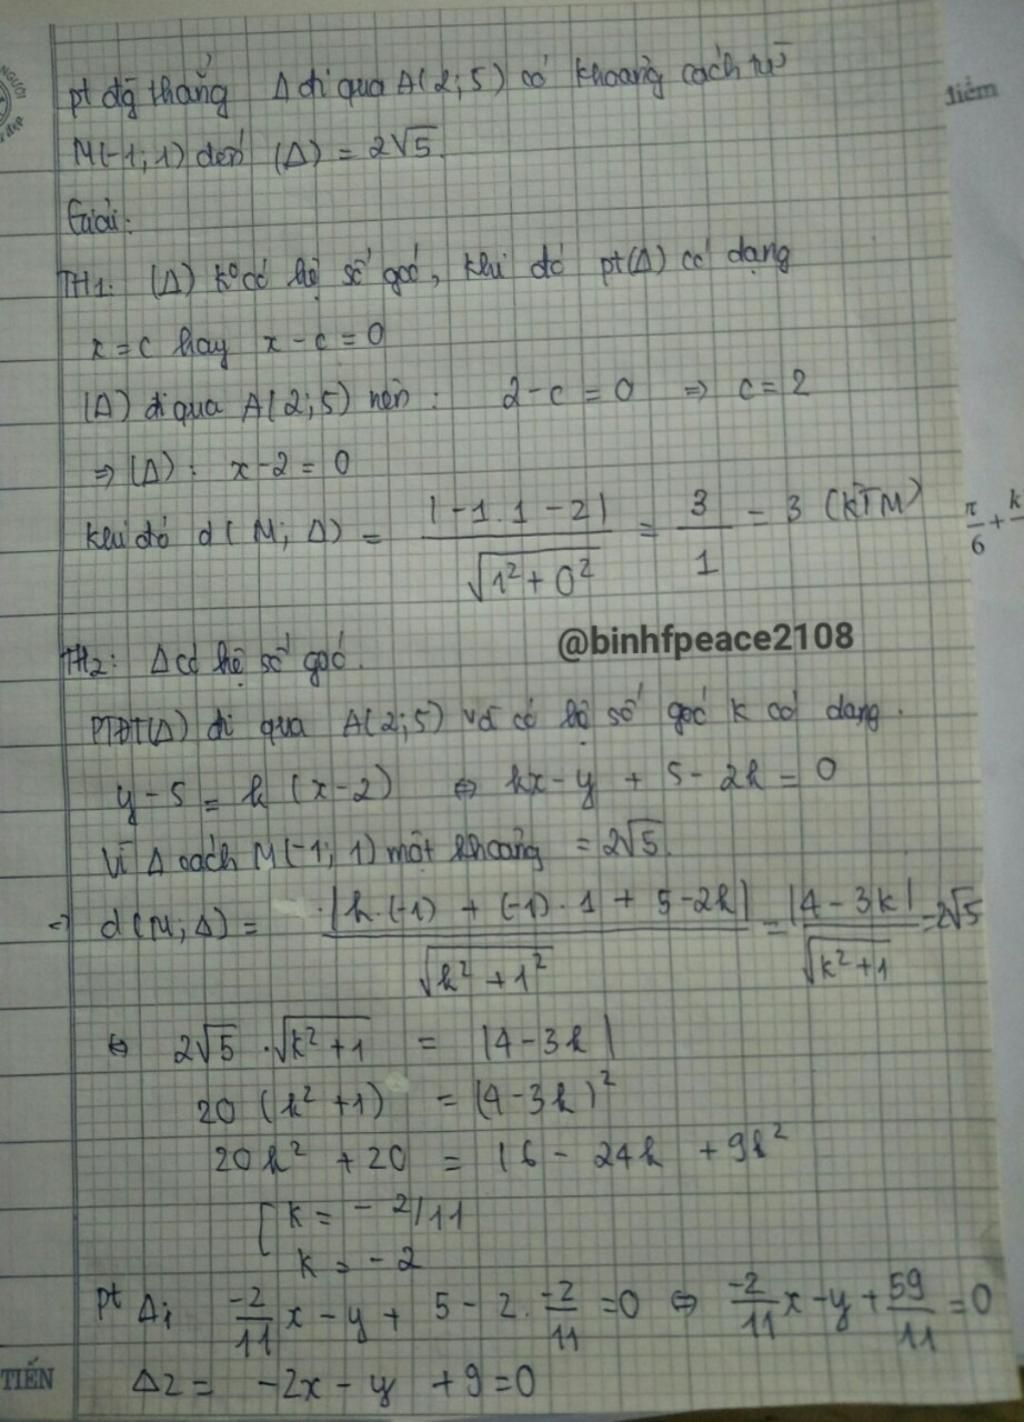 NGƯỜI
đẹp
pt đg thẳng Δ đi qua A(2;5) có khoảng cách từ
điểm
M(-1;1) đến (Δ) = 2√5.
Giải:
TH1: (Δ) kº có hệ số góc, khi đó pt(Δ) có dạng
x = c hay x - c = 0
(Δ) đi qua A(2;5) nên: 2-c = 0 ⇒ c = 2
⇒ (Δ): x-2 = 0
khi đó d(M; Δ) = |-1.1-2| / √(1²+0²) = 3/1 = 3 (KTM)
π/6 + k
TH2: Δ có hệ số góc.
@binhfpeace2108
PTĐT(Δ) đi qua A(2;5) và có hệ số góc k có dạng.
y-5 = k (x-2) ⇔ kx-y + 5-2k = 0
Vì Δ cách M(-1;1) một khoảng = 2√5.
⇒ d(M;Δ) = |k.(-1) + (-1).1 + 5-2k| / √(k²+1²) = |4-3k| / √(k²+1) = 2√5
⇔ 2√5 .√(k²+1) = |4-3k|
20 (k²+1) = (4-3k)²
20k² +20 = 16 - 24k + 9k²
[ k = -2/11
k = -2
pt Δ1 -2/11 x - y + 5 - 2. -2/11 =0 ⇔ -2/11 x -y + 59/11 =0
TIẾN
Δ2 = -2x - y + 9 = 0